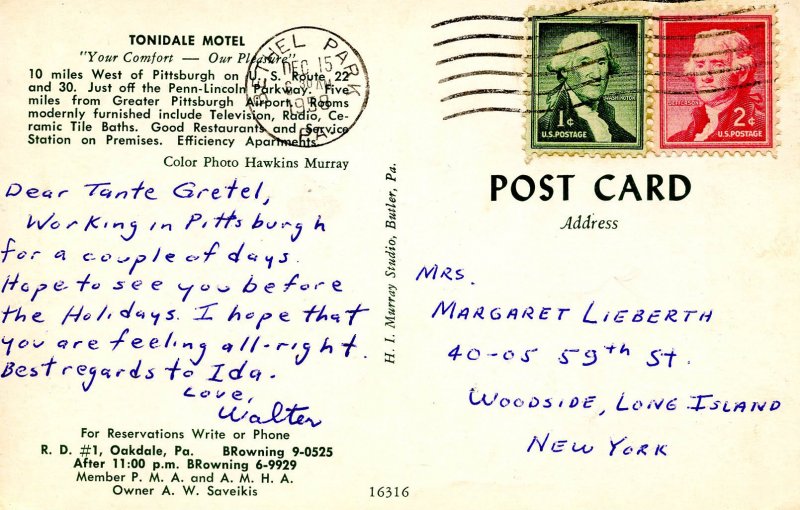 TONIDALE MOTEL
"Your Comfort — Our Pleasure"
10 miles West of Pittsburgh on U. S. Route 22
and 30. Just off the Penn-Lincoln Parkway. Five
miles from Greater Pittsburgh Airport. Rooms
modernly furnished include Television, Radio, Ce-
ramic Tile Baths. Good Restaurants and Service
Station on Premises. Efficiency Apartments.
Color Photo Hawkins Murray
BETHEL PARK
DEC 15
PA.
Dear Tante Gretel,
Working in Pittsburgh
for a couple of days.
Hope to see you before
the Holidays. I hope that
you are feeling all-right.
Best regards to Ida.
Love,
Walter
For Reservations Write or Phone
R. D. #1, Oakdale, Pa. BRowning 9-0525
After 11:00 p.m. BRowning 6-9929
Member P. M. A. and A. M. H. A.
Owner A. W. Saveikis
H. I. Murray Studio, Butler, Pa.
16316
WASHINGTON
1¢
U.S. POSTAGE
JEFFERSON
2¢
U.S. POSTAGE
POST CARD
Address
MRS.
MARGARET LIEBERTH
40-05 59th ST.
WOODSIDE, LONG ISLAND
NEW YORK